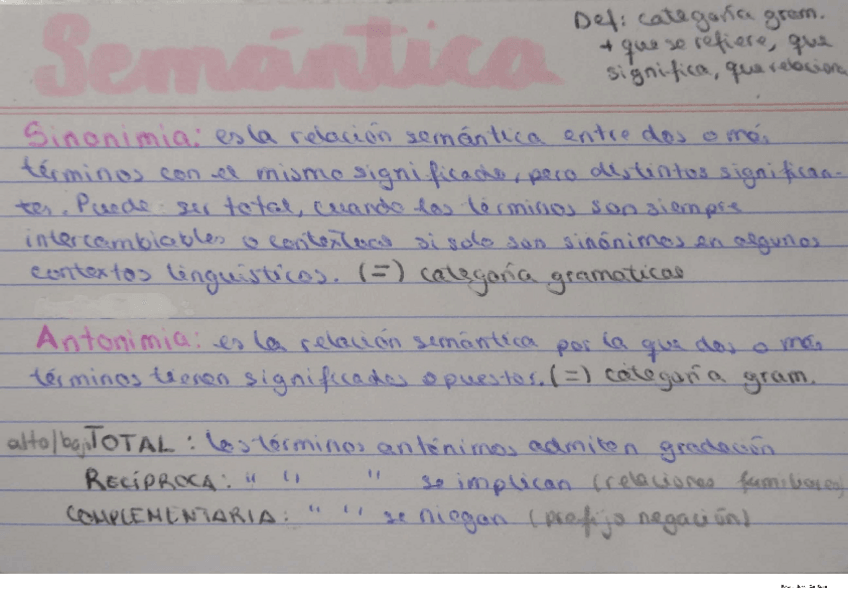 Semántica
Def: categoría gram.
+ que se refiere, que
significa, que relaciona
Sinonimia: es la relación semántica entre dos o más
términos con el mismo significado, pero distintos significan-
tes. Puede ser total, cuando los términos son siempre
intercambiables o contextual si solo son sinónimos en algunos
contextos lingüísticos. (=) categoría gramatical
Antonimia: es la relación semántica por la que dos o más
términos tienen significados opuestos. (=) categoría gram.
alto/bajo TOTAL: los términos antónimos admiten gradación
RECÍPROCA: " " " se implican (relaciones familiares)
COMPLEMENTARIA: " " se niegan (prefijo negación)